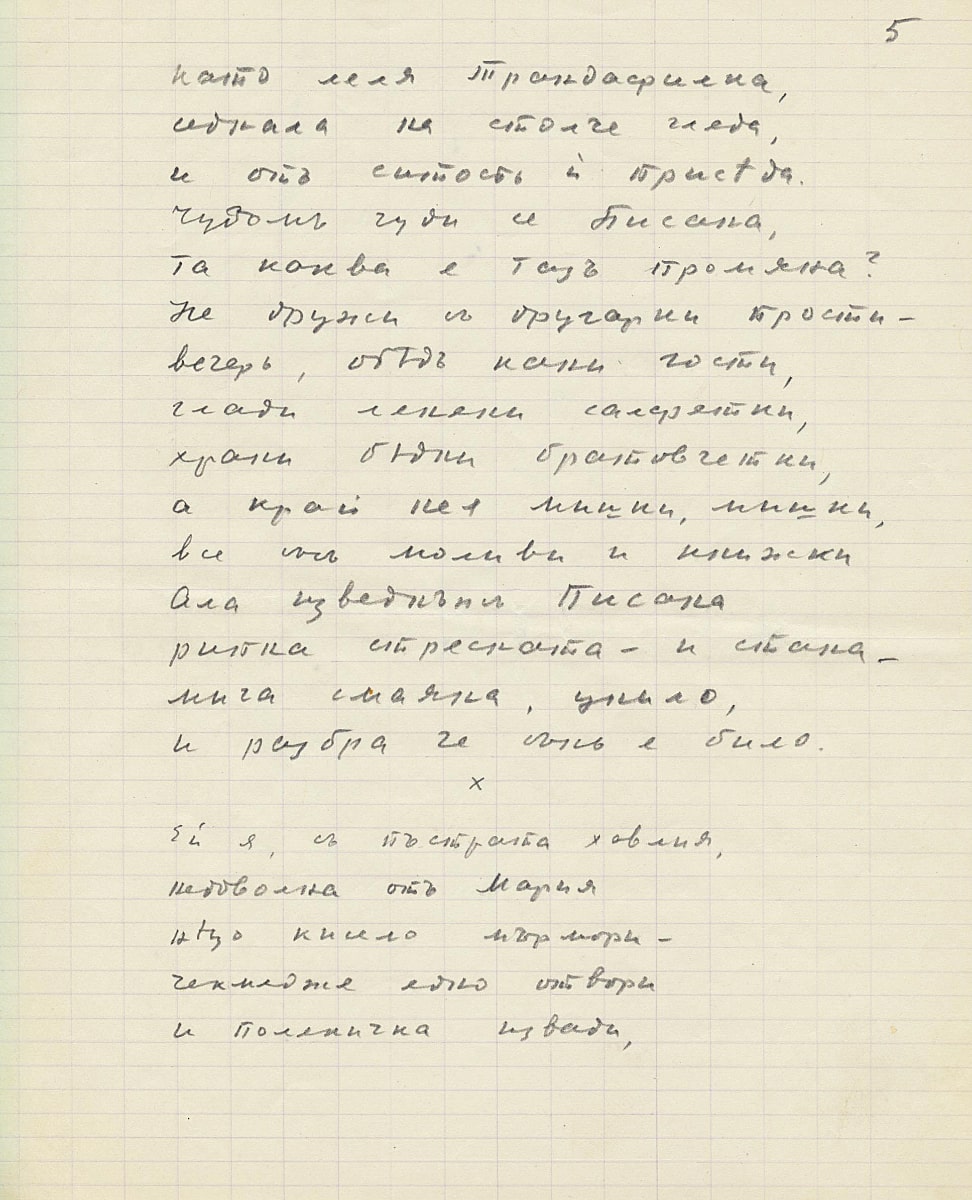 5
като леля Трандафилка,
седнала на столче гледа,
и отъ ситость ѝ присѣда.
Чудомъ чуди се Писана,
та каква е тазъ промяна?
Не дружи съ другарки прости –
вечерь, обѣдъ кани гости,
глади ленени салфетки,
храни бѣдни братовчетки,
а край нея мишки, мишки,
все съсъ моливи и книжки
Ала изведнъжъ Писана
рипна стресната – и стана –
мига смаяна, унило,
и разбра че сънь е било.
x
Ей я, съ пъстрата ховлия,
недоволна отъ Мария
нѣщо кисело мърмори –
чекмедже едно отвори
и поленичка извади,